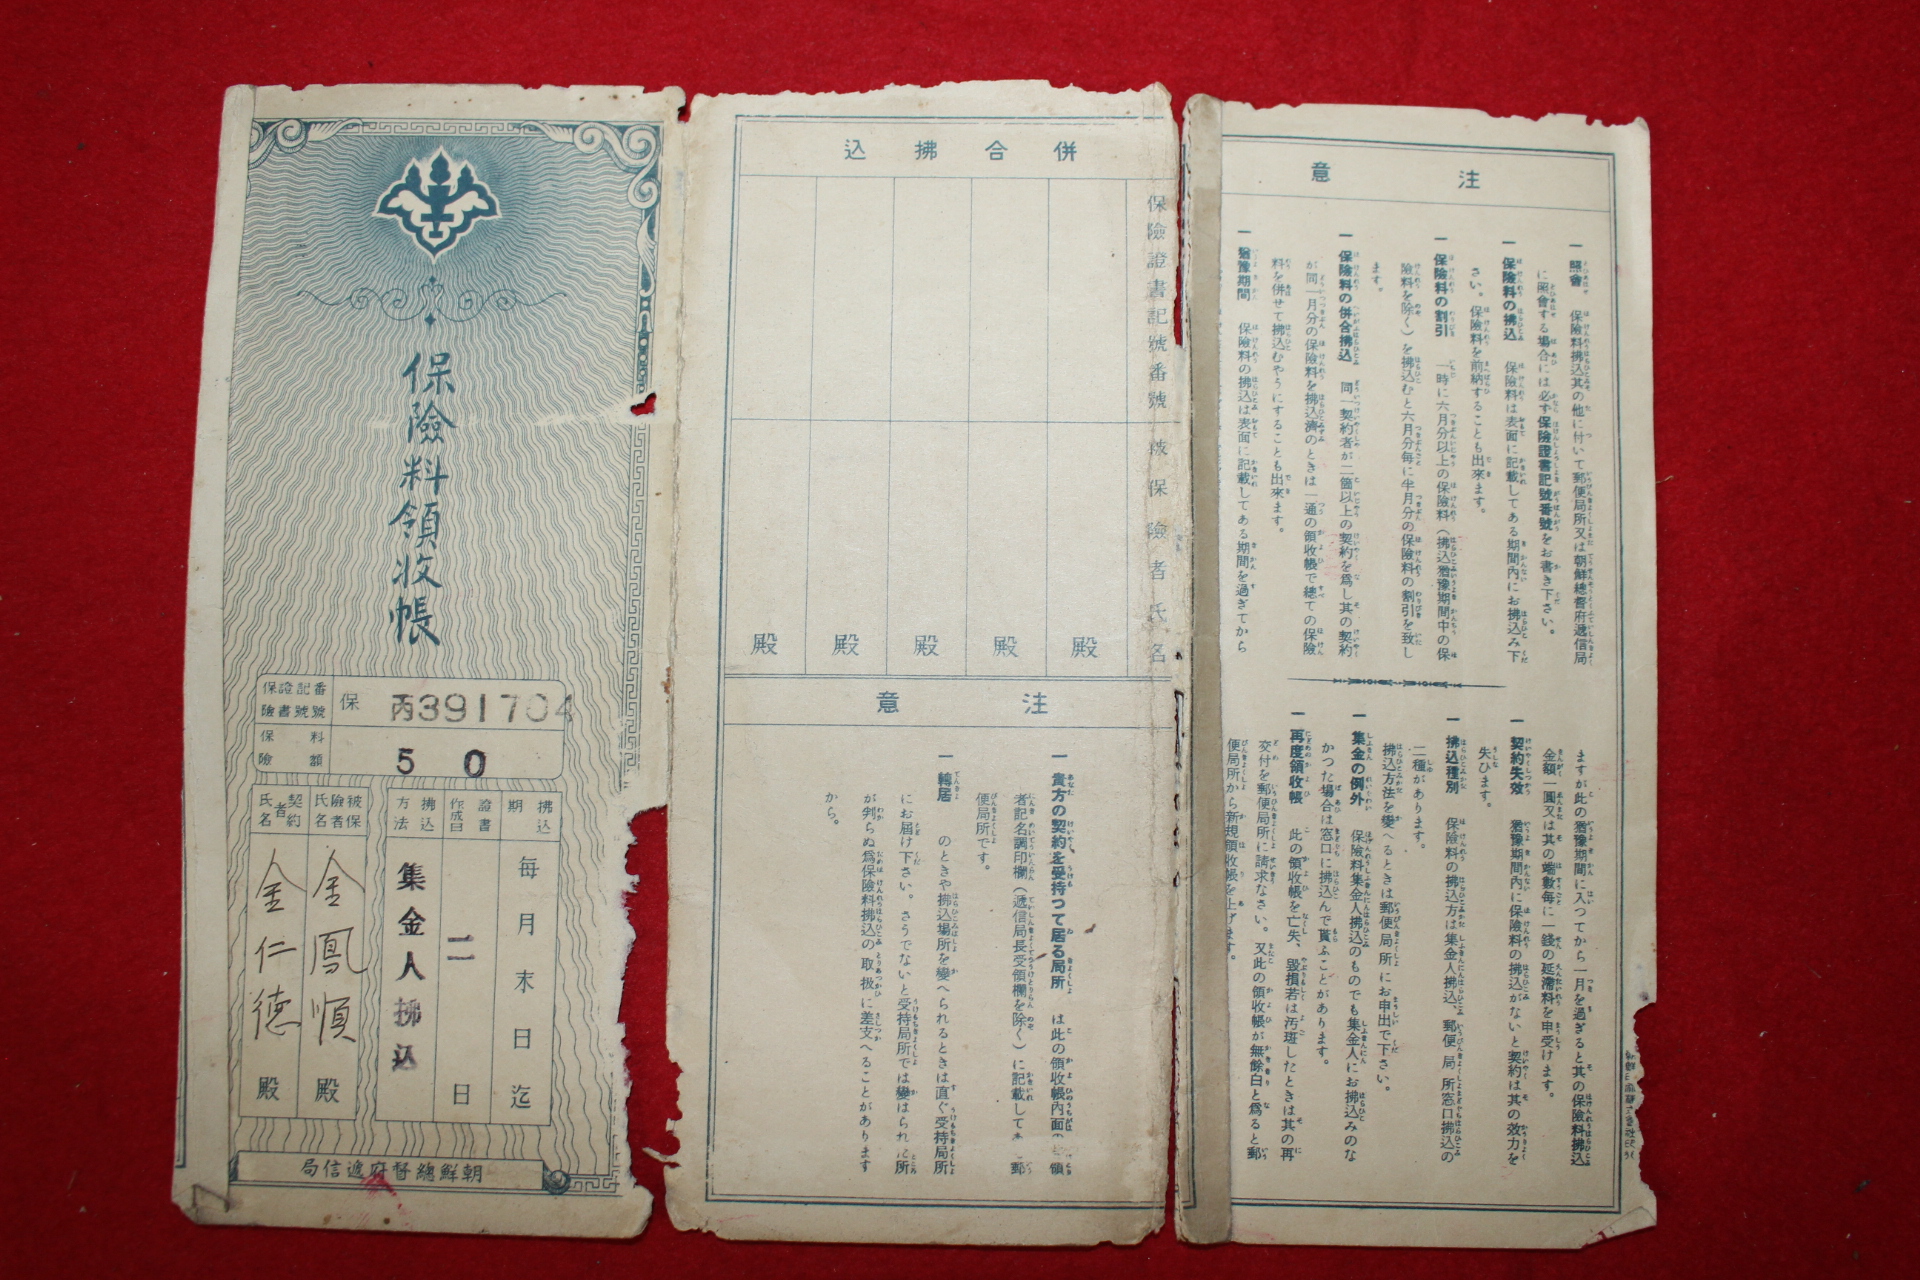 保險料領收帳
保險證書記號番號
保 丙391704
保險料額
50
拂込期
每月末日迄
證書作成日
二日
拂込方法
集金人拂込
被保險者氏名
金鳳順殿
契約者氏名
金仁德殿
朝鮮總督府遞信局
併合拂込
保險證書記號番號
被保險者氏名
殿
殿
殿
殿
殿
注意
一 貴方の契約を受持つて居る局所 は此の領收帳內面の 領
者記名調印欄（遞信局長受領欄を除く）に記載して 郵
便局所です。
一 轉居 のときや拂込場所を變へられるときは直ぐ受持局所
にお届け下さい。さうでないと受持局所では變はられ 所
が判らぬ爲保險料拂込の取扱に差支へることがあります
から。
注意
一 照會 保險料拂込其の他に付いて郵便局所又は朝鮮總督府遞信局
に照會する場合には必ず保險證書記號番號をお書き下さい。
一 保險料の拂込 保險料は表面に記載してある期間內にお拂込み下
さい。保險料を前納することも出來ます。
一 保險料の割引 一時に六月分以上の保險料（拂込猶豫期間中の保
險料を除く）を拂込むと六月分每に半月分の保險料の割引を致し
ます。
一 保險料の併合拂込 同一契約者が二箇以上の契約を爲し其の契約
が同一月分の保險料を拂込濟のときは一通の領收帳で總ての保險
料を併せて拂込むやうにすることも出來ます。
一 猶豫期間 保險料の拂込は表面に記載してある期間を過ぎてから
ますが此の猶豫期間に入つてから一月を過ぎると其の保險料拂込
金額一圓又は其の端數每に一錢の延滯料を申受けます。
一 契約失效 猶豫期間內に保險料の拂込がないと契約は其の效力を
失ひます。
一 拂込種別 保險料の拂込方は集金人拂込、郵便局所窓口拂込の
二種があります。
拂込方法を變へるときは郵便局所にお申出で下さい。
一 集金の例外 保險料集金人拂込のものでも集金人にお拂込みのな
かつた場合は窓口に拂込んで貰ふことがあります。
一 再度領收帳 此の領收帳を亡失、毀損若は汚斑したときは其の再
交付を郵便局所に請求なさい。又此の領收帳が無餘白と爲ると郵
便局所から新規領收帳を上げます。